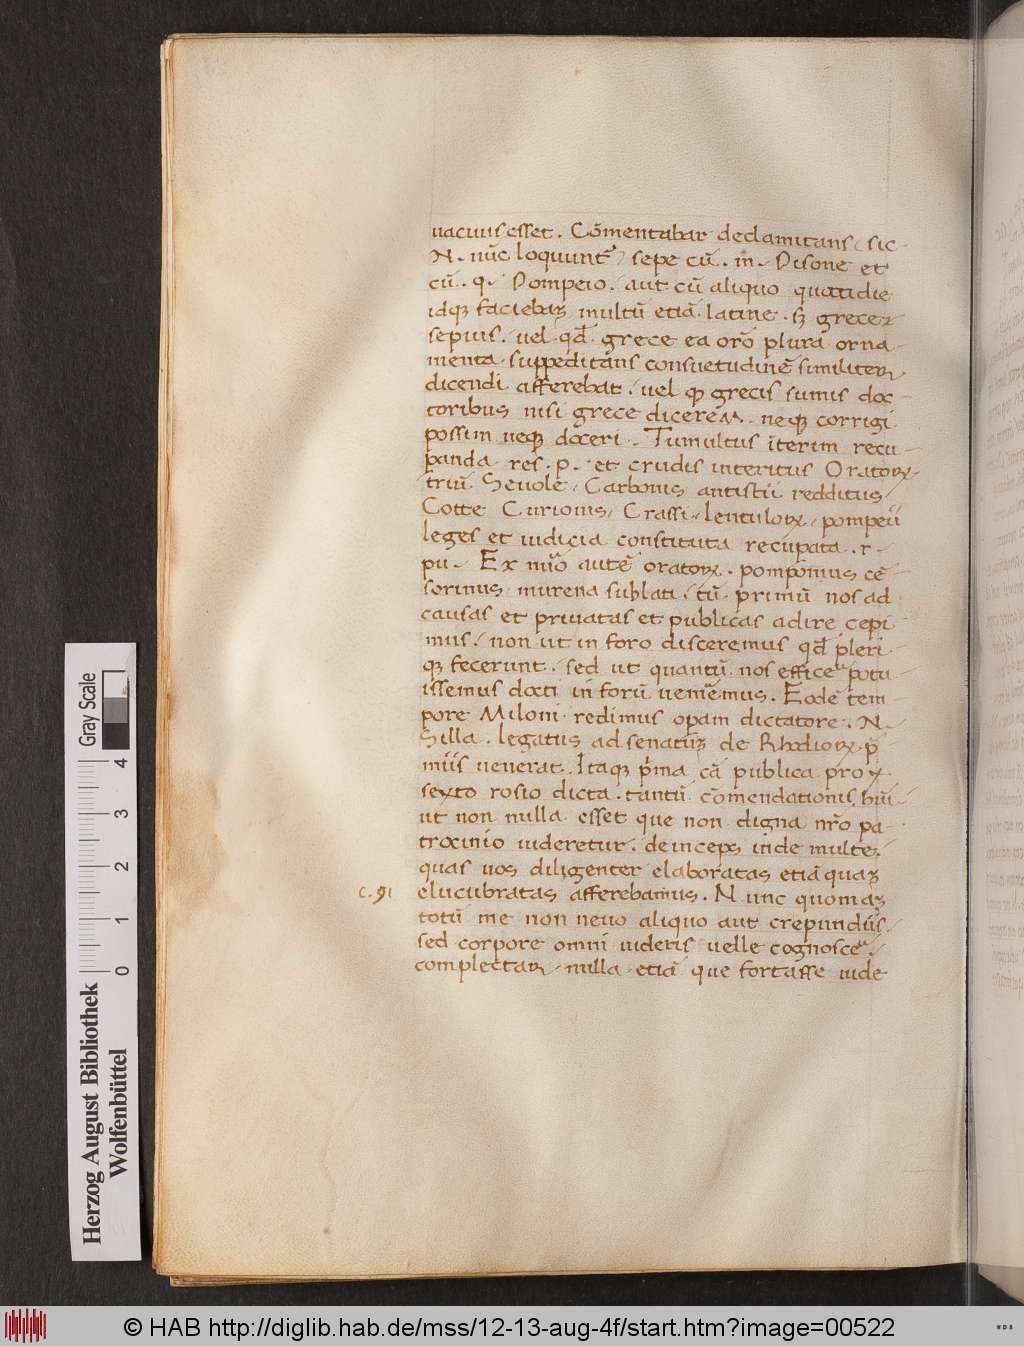 uacuus esset. Cōmentabar declamitans, sic
N. nūc loquunt᷑, sepe cū. m. Pisone et
cū. q. Pompeio. aut cū aliquo quotidie
idqꝫ faciebaꝫ multū etiā latine. sꝫ grece
sepius. uel qđ grece ea orō plura orna-
menta suppeditans consuetudinē similiter
dicendi afferebat. uel ꝙ grecis sumis doc-
toribus nisi grece dicereꝫ. neqꝫ corrigi
possim neqꝫ doceri. Tumultus īterim recu-
panda res. p. et crudis interitus Oratoꝝ
triū Seuole, Carbonis antistii redditus
Cotte Curionis, Crassi, lentuloꝝ, pompeii
leges et iudicia constituta recuꝑata. r-
pu. Ex nūo autē oratoꝝ. pomponius cē-
sorinus, murena sublati, tū primū nos ad
causas et priuatas et publicas adire cepi-
mus. non ut in foro disceremus qđ pleri-
qꝫ fecerunt. sed ut quantū nos efficere potu-
issemus docti in forū ueniremus. Eodē tem-
pore Miloni redimus opam dictatore. N.
Silla. legatus ad senatuꝫ de Rhodioꝝ p̄-
miis uenerat. Itaqꝫ pͥma cā publica pro
sexto rosio dicta. tantū cōmendationis hūi-
ut non nulla esset que non digna nrō pa-
trocinio uideretur. deinceps inde multe.
quas nos diligenter elaboratas etiā quaꝫ
c. 91 elucubratas afferebamus. Nunc quoniaꝫ
totū me non neuo aliquo aut crepundiis.
sed corpore omni uideris uelle cognoscere.
complectar nulla etiā que fortasse uide
Gray Scale
0 1 2 3 4
Herzog August Bibliothek
Wolfenbüttel
© HAB http://diglib.hab.de/mss/12-13-aug-4f/start.htm?image=00522